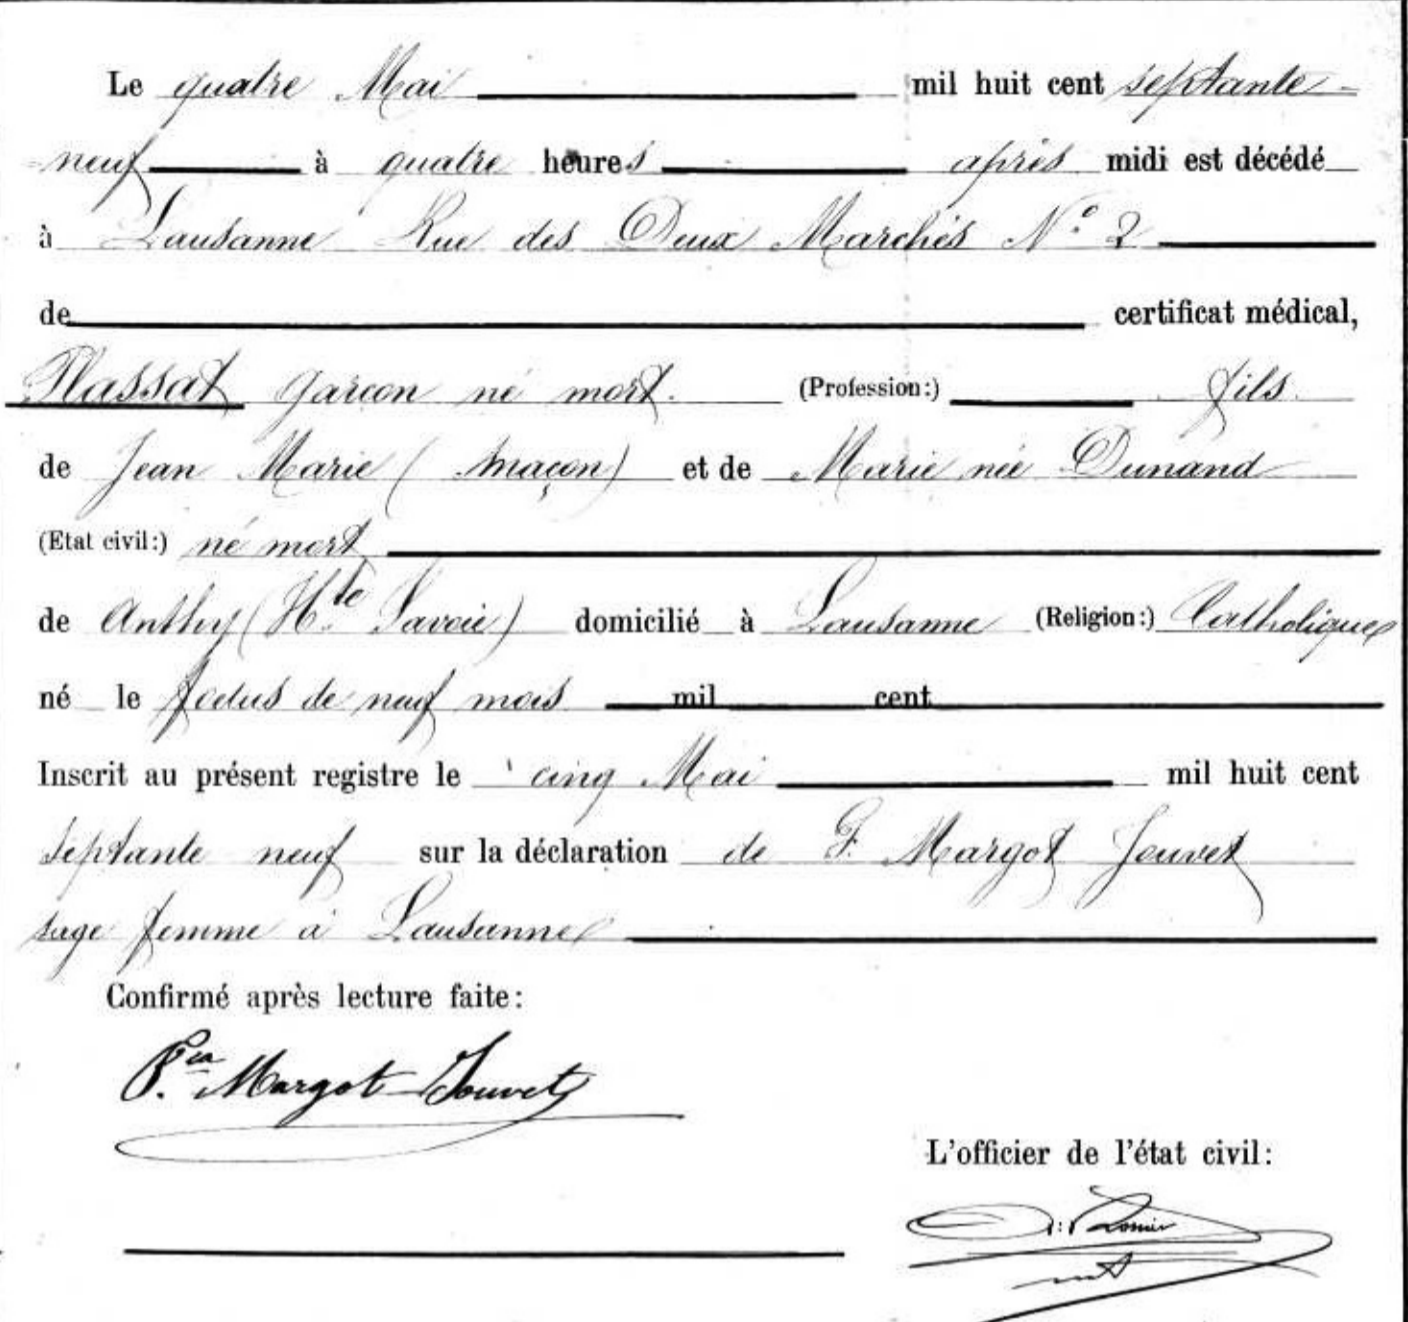 Le quatre Mai mil huit cent septante-
neuf à quatre heures après midi est décédé
à Lausanne Rue des Deux Marchés N° 2
de certificat médical,
Plassat garçon né mort. (Profession:) fils
de Jean Marie (maçon) et de Marie née Dunand
(Etat civil:) né mort
de Anthy (Hte Savoie) domicilié à Lausanne (Religion:) Catholique
né le foetus de neuf mois mil cent
Inscrit au présent registre le cinq Mai mil huit cent
septante neuf sur la déclaration de F. Margot Jouvet
sage femme à Lausanne
Confirmé après lecture faite:
Margot-Jouvet
L'officier de l'état civil: